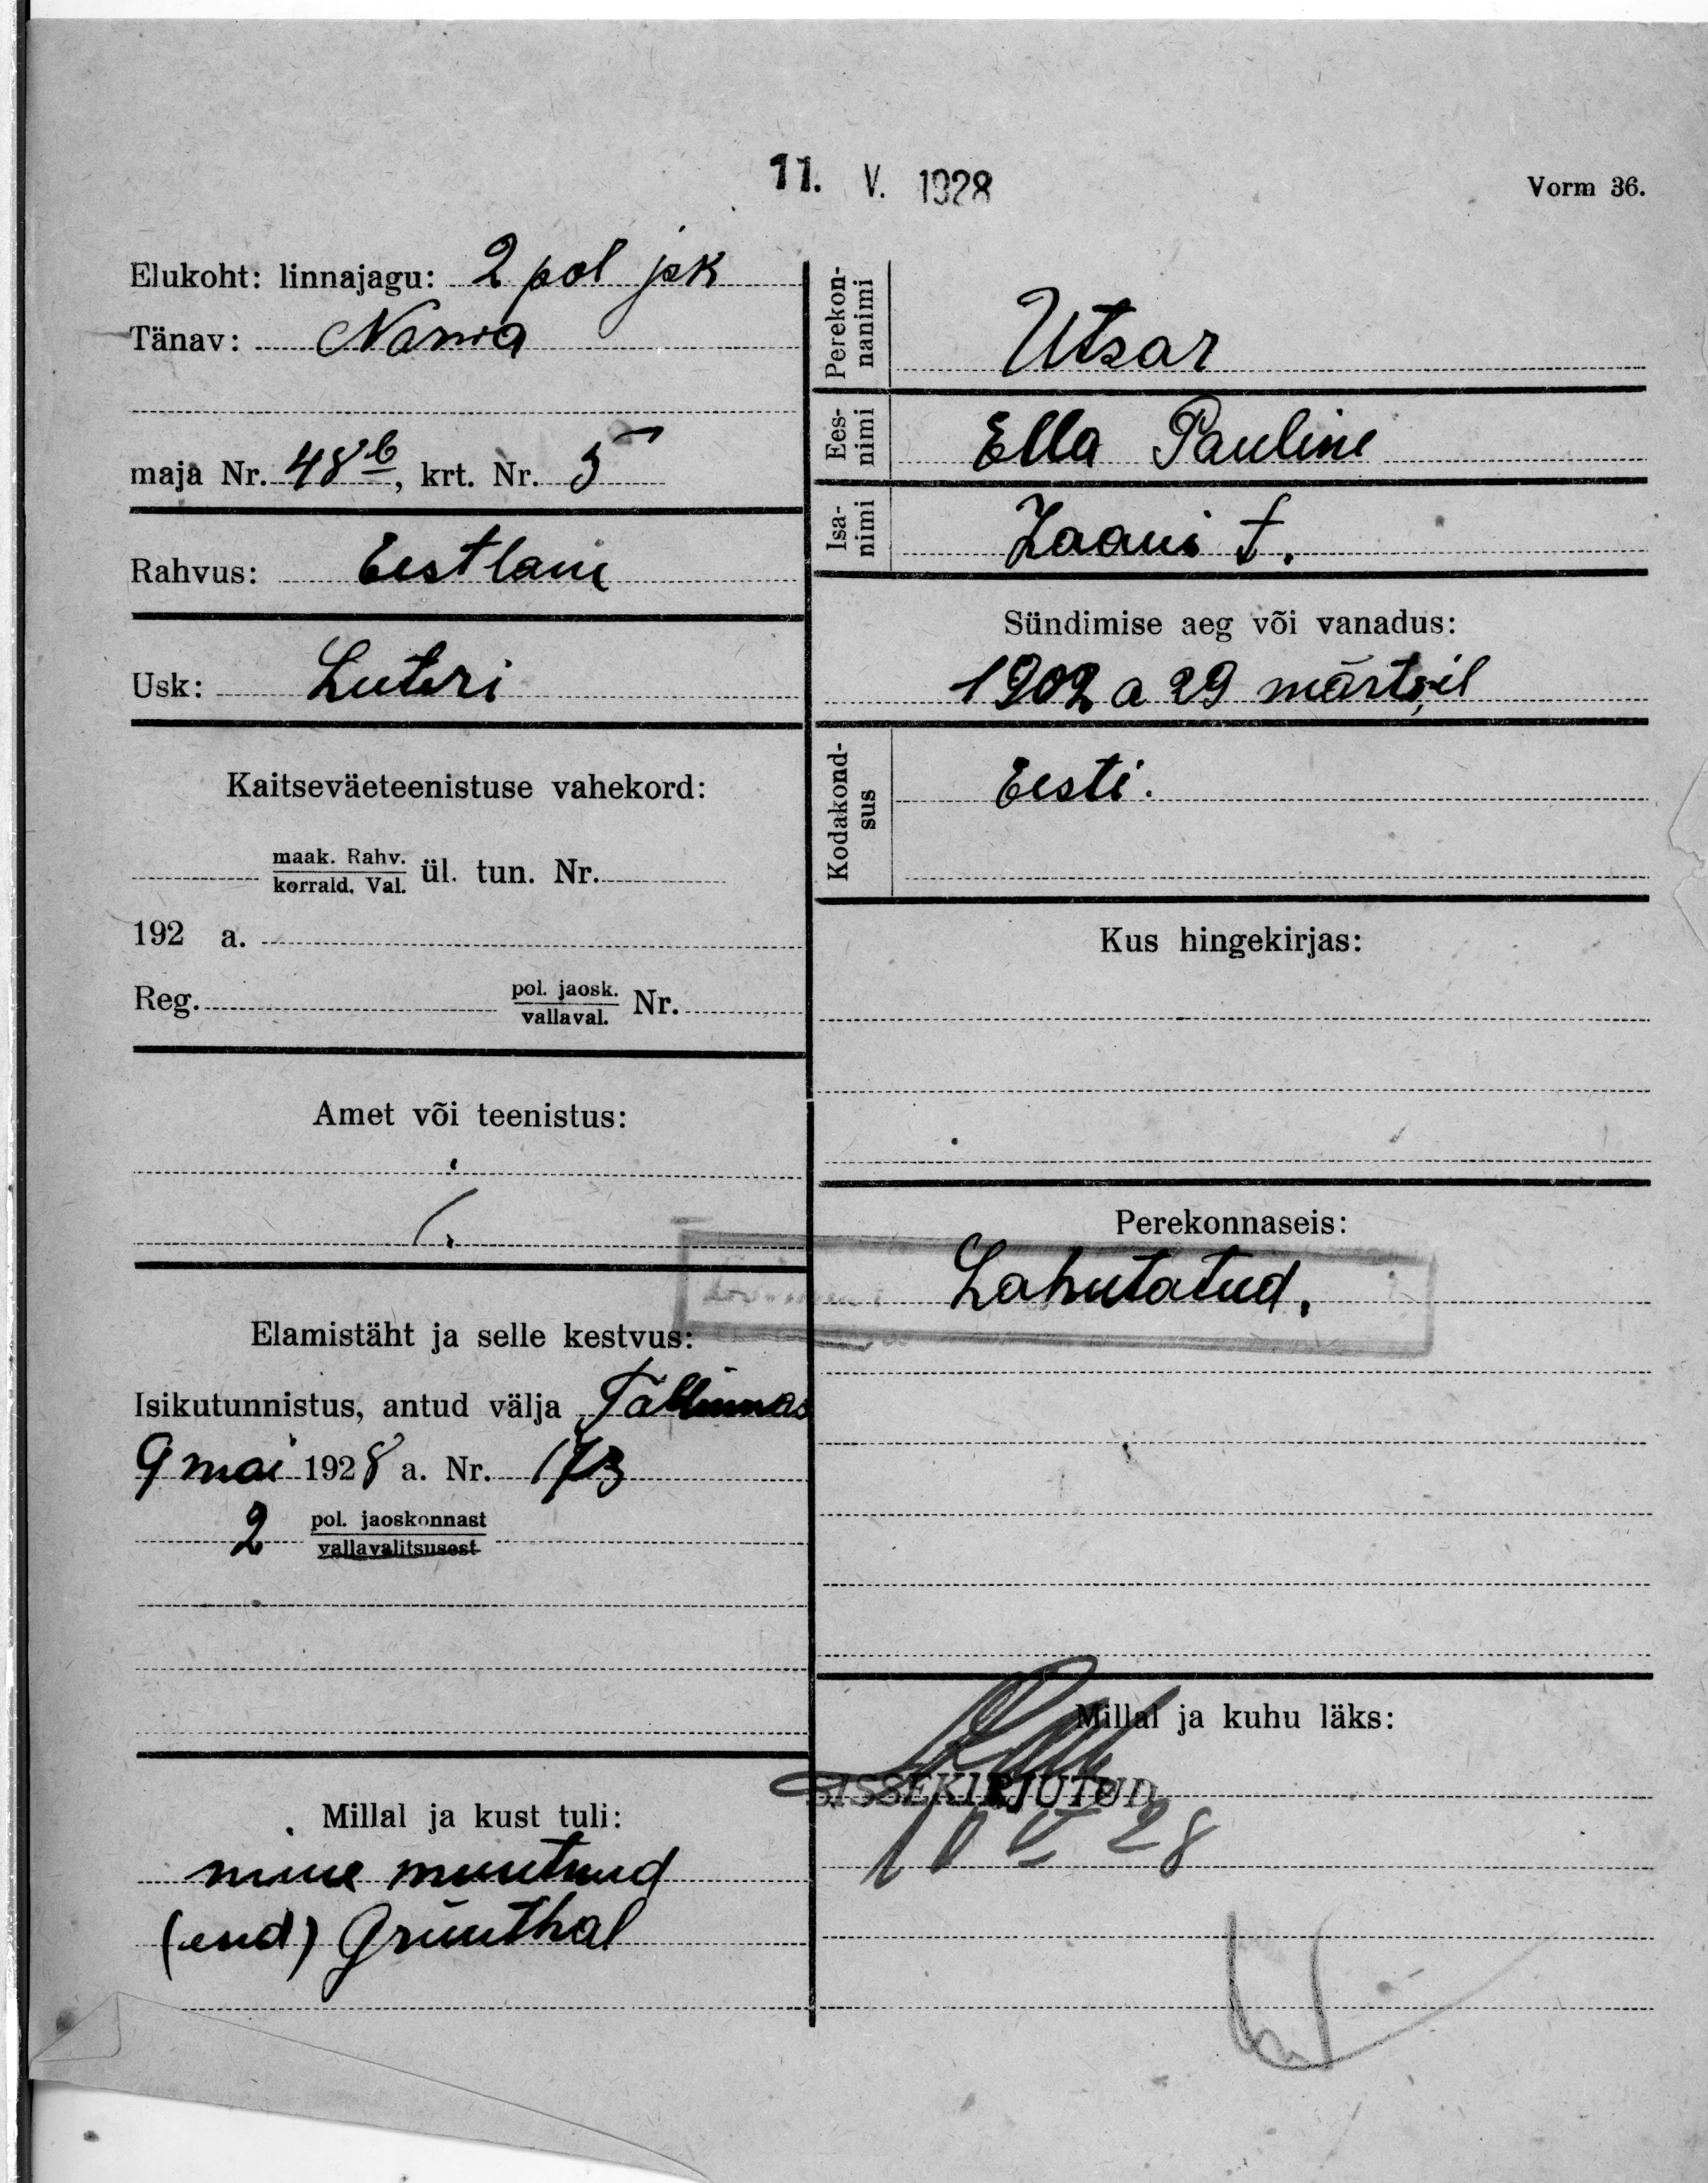 11. V. 1928
Vorm 36.
Elukoht: linnajagu: 2 pol jsk
Tänav: Narva
maja Nr. 48 b, krt. Nr. 5
Rahvus: Eestlane
Usk: Luteri
Kaitseväeteenistuse vahekord:
maak. Rahv.
korrald. Val. ül. tun. Nr.
192 a.
Reg. pol. jaosk.
vallaval. Nr.
Amet või teenistus:
Elamistäht ja selle kestvus:
Isikutunnistus, antud välja Tallinnas
9 mai 1928 a. Nr. 173
2 pol. jaoskonnast
vallavalitsusest
Millal ja kust tuli:
nime muutnud
(end) Grünthal
Perekon-
nanimi
Utsar
Ees-
nimi
Ella Pauline
Isa-
nimi
Jaani t.
Sündimise aeg või vanadus:
1902 a 29 märtsil
Kodakond-
sus
Eesti.
Kus hingekirjas:
Perekonnaseis:
Lahutatud.
Millal ja kuhu läks:
SISSEKIRJUTUD
10 V 28